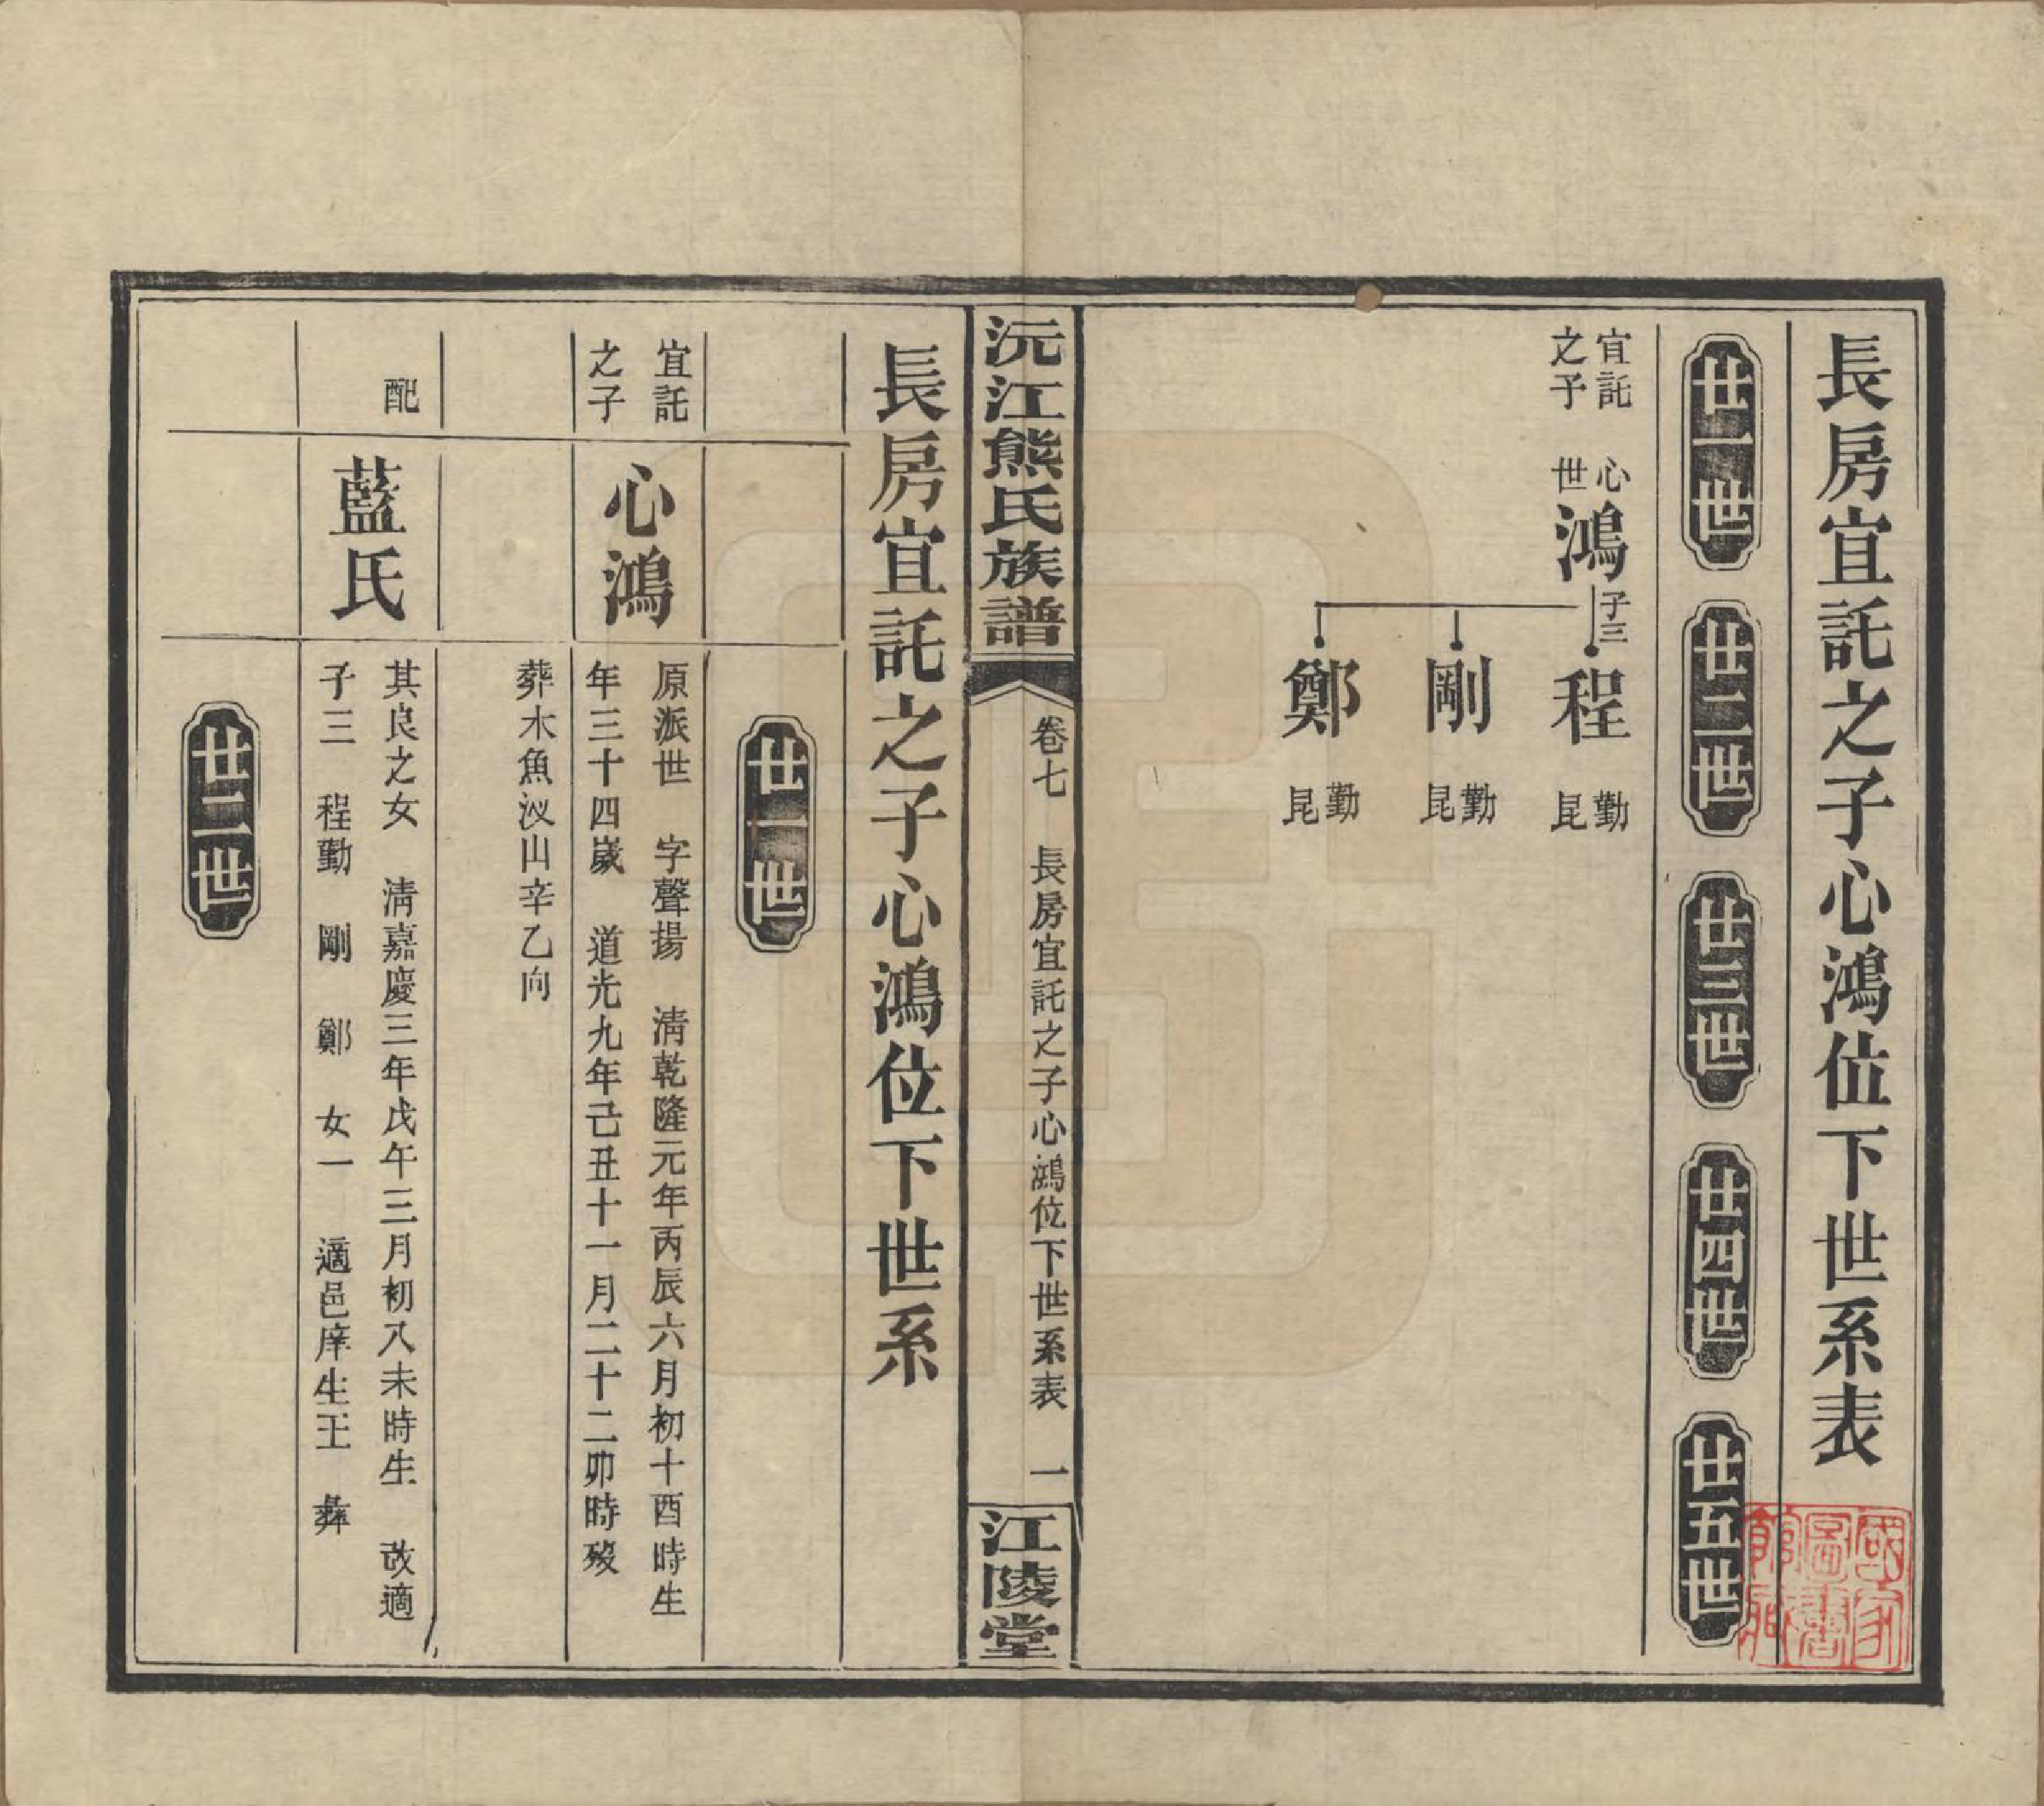 長房宜託之子心鴻位下世系表
廿一世
廿二世
廿三世
廿四世
廿五世
宜託
之子
心
世
鴻
子三
程
勤
昆
剛
勤
昆
鄭
勤
昆
國家
圖書
館藏
沅江熊氏族譜
卷七 長房宜託之子心鴻位下世系表 一
江陵堂
長房宜託之子心鴻位下世系
廿一世
宜託
之子
心鴻
原派世 字聲揚 淸乾隆元年丙辰六月初十酉時生
年三十四歲 道光九年己丑十一月二十二卯時歿
葬木魚汊山辛乙向
配
藍氏
其良之女 淸嘉慶三年戊午三月初八未時生 改適
子三 程勤 剛 鄭 女一 適邑庠生王 彝
廿二世